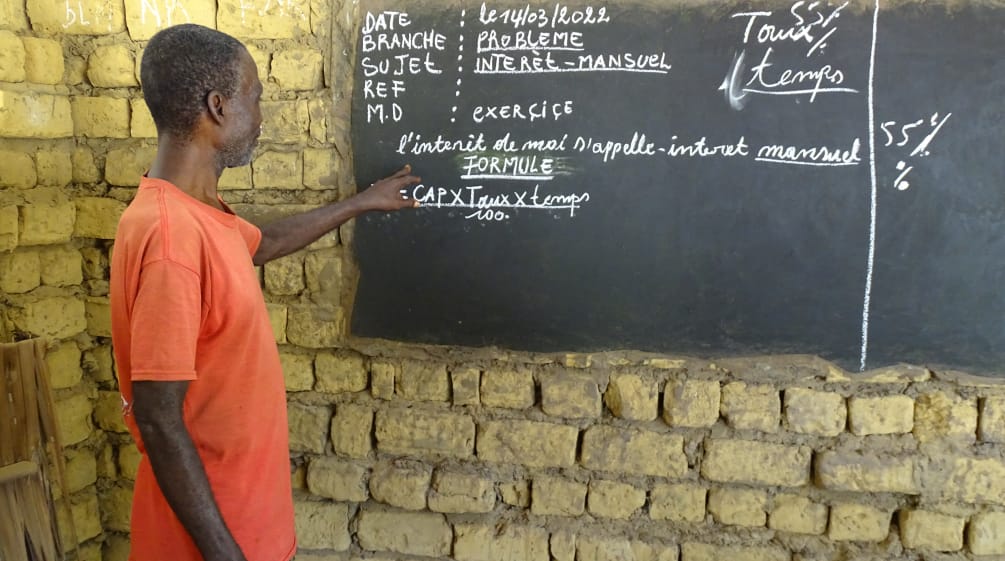 DATE : le 14/03/2022
BRANCHE : PROBLEME
SUJET : INTERÈT-MANSUEL
REF :
M.D : exerçiçe
l'interèt de mai s'appelle-interet mansuel
FORMULE
= CAP X Taux X temps
100.
55%
Taux %
temps
55 %
%